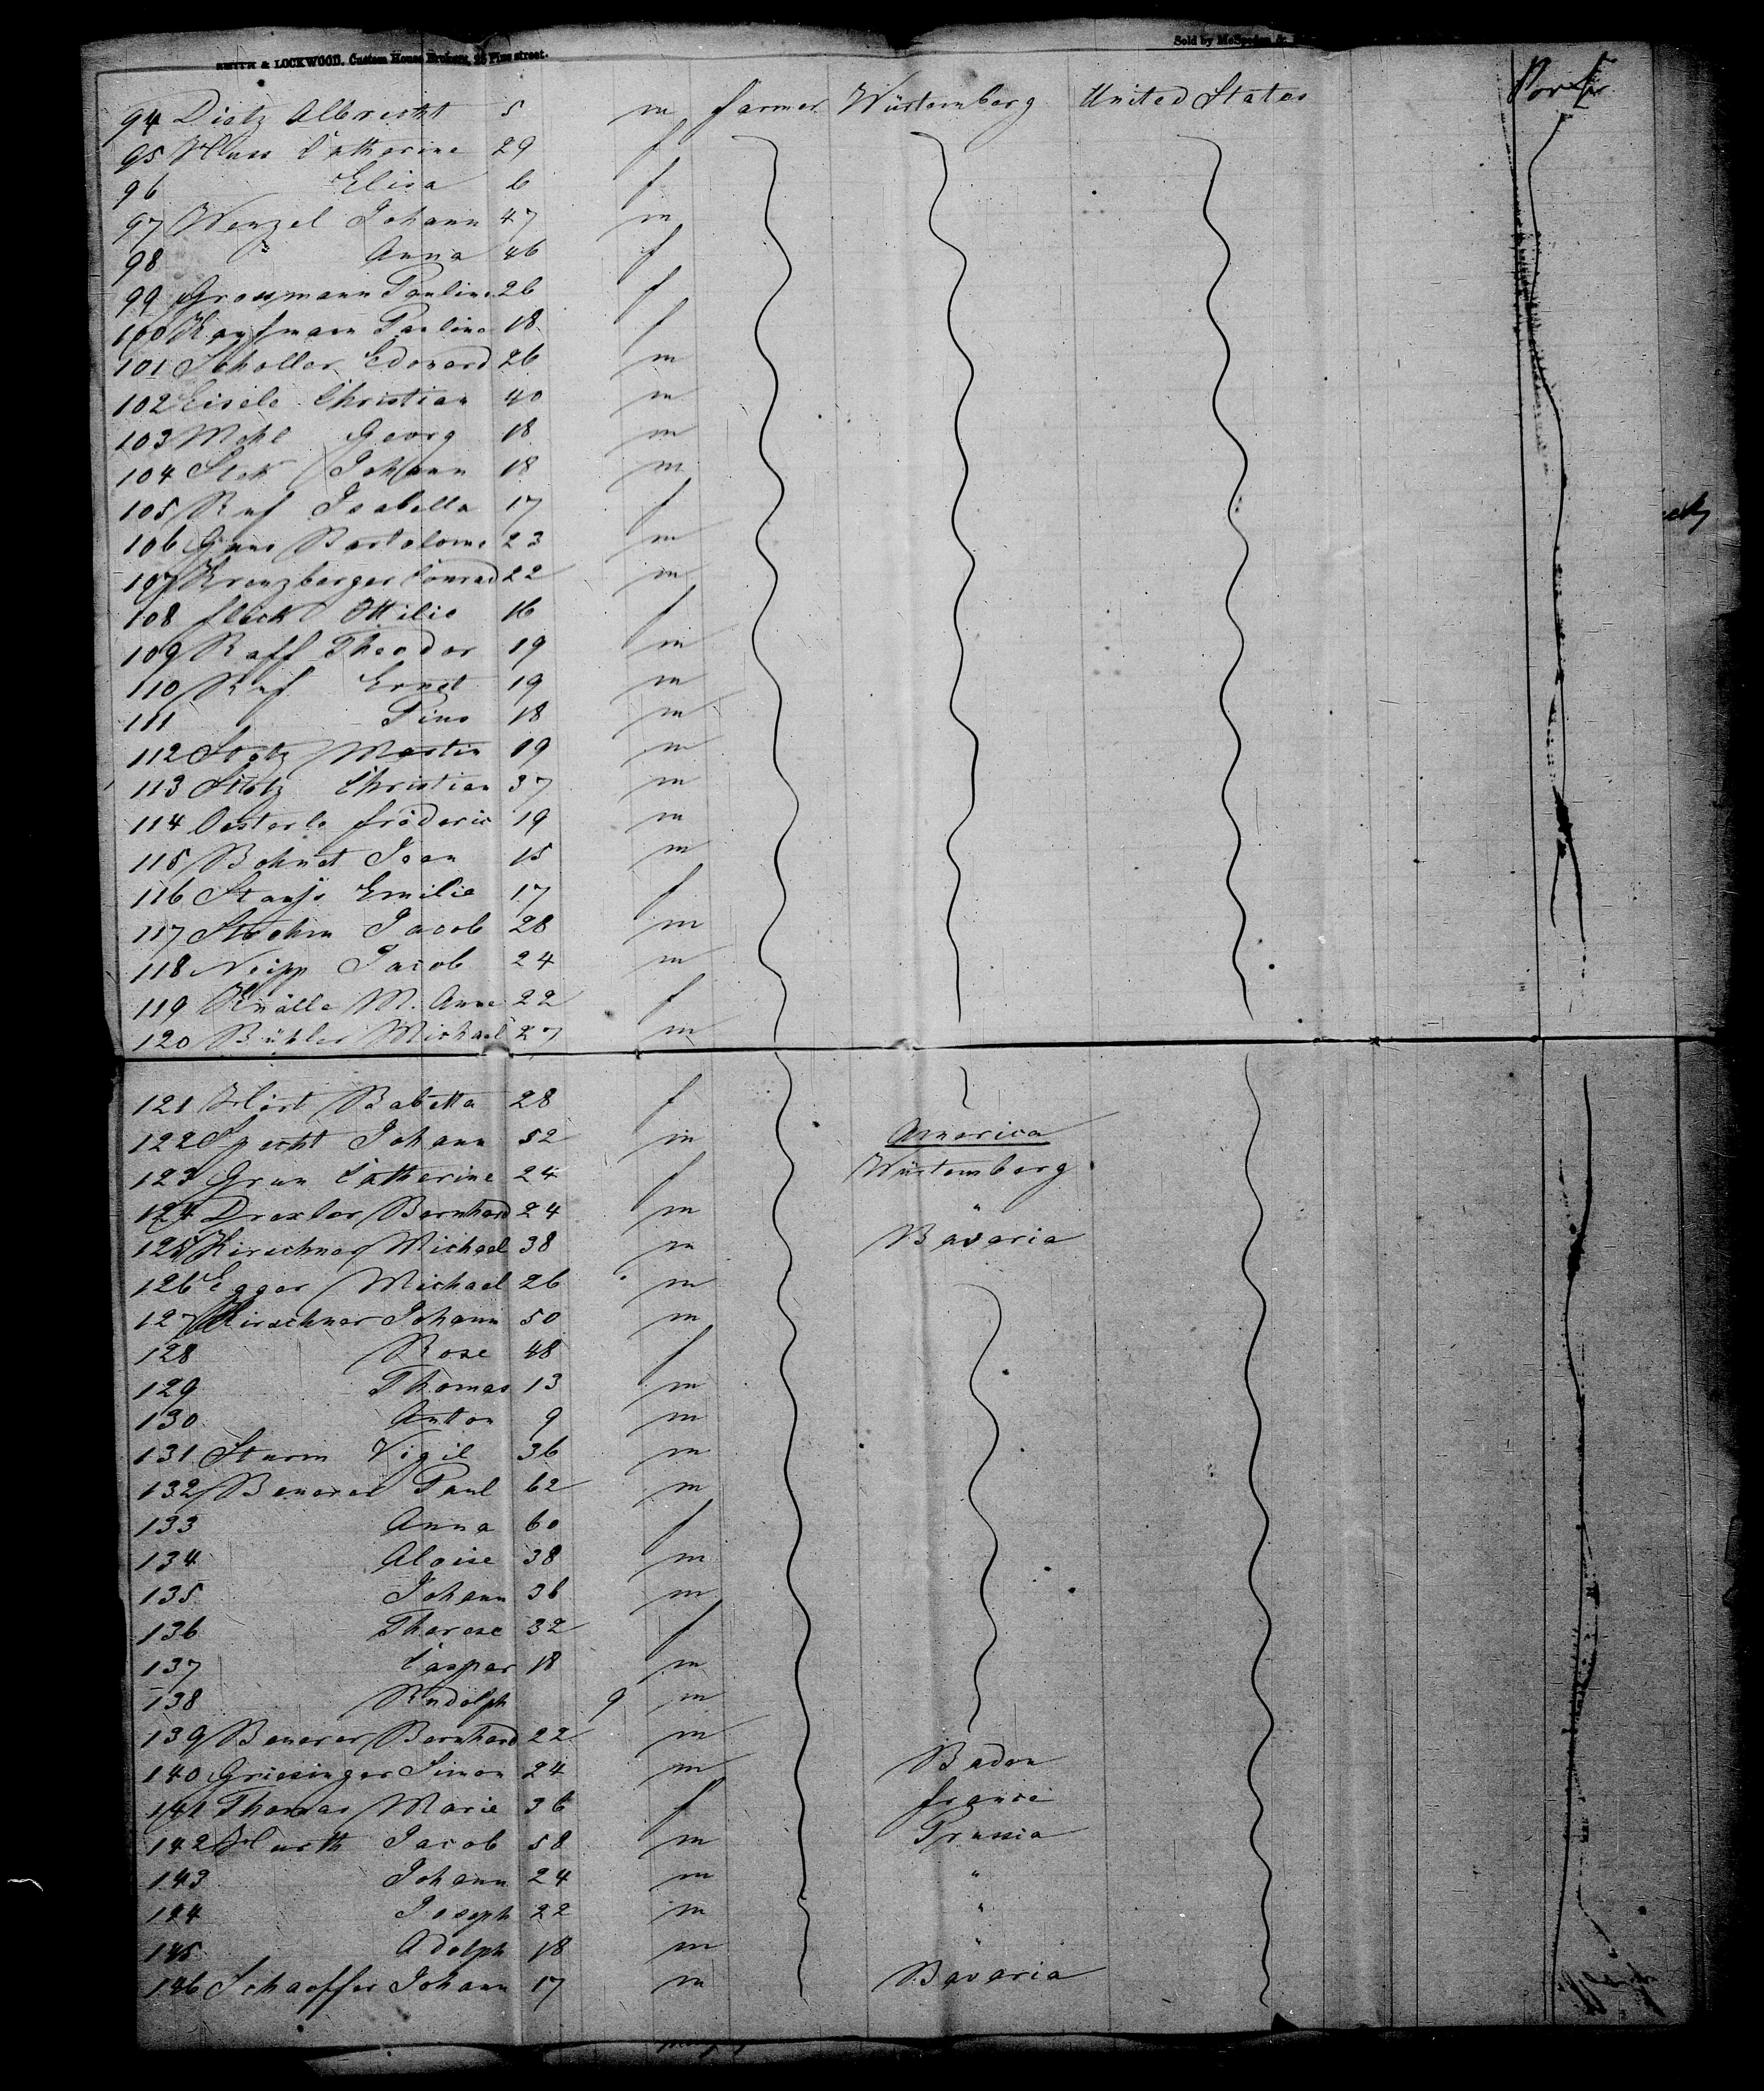 SMITH & LOCKWOOD, Custom House Brokers, 25 Pine street. Sold by McSpedon &
94 Dietz Albrecht 5 m farmer Würtemberg United States
95 Catherine 29 f
96 Elisa 6 f
97 Wenzel Johann 47 m
98 " Anna 46 f
99 Grossmann Pauline 26 f
100 Kaufmann Pauline 18 f
101 Scholler Edouard 26 m
102 Eisele Christian 40 m
103 Mohl Georg 18 m
104 Stek Johann 18 m
105 Ruf Isabella 17 f
106 Gans Bartolome 23 m
107 Kranzberger Conrad 22 m
108 fleck Ottilie 16 f
109 Raff Theodor 19 m
110 Ruf Ernst 19 m
111 Pius 18 m
112 Stotz Martin 19 m
113 Stotz Christian 37 m
114 Oesterle fréderic 19 m
115 Bohnet Jean 15 m
116 Emilie 17 f
117 Strohm Jacob 28 m
118 Neipp Jacob 24 m
119 Knölle M. Anne 22 f
120 Bühler Michael 27 m
121 Babetta 28 f
122 Specht Johann 52 m America
123 Grun Catherine 24 f Würtemberg
124 Drexler Bernhard 24 m "
125 Kirschner Michael 38 m Bavaria
126 Egger Michael 26 m
127 Kirschner Johann 50 m
128 Rose 48 f
129 Thomas 13 m
130 Anton 9 m
131 Sturm Vigil 36 m
132 Benerer Paul 62 m
133 Anna 60 f
134 Aloise 38 m
135 Johann 36 m
136 Therese 32 f
137 Caspar 18 m
138 Rudolph 9 m
139 Benerer Bernhard 22 m
140 Griesinger Simon 24 m Baden
141 Thomas Marie 36 f france
142 Hurth Jacob 58 m Prussia
143 Johann 24 m "
144 Joseph 22 m "
145 Adolph 18 m "
146 Schaeffer Johann 17 m Bavaria